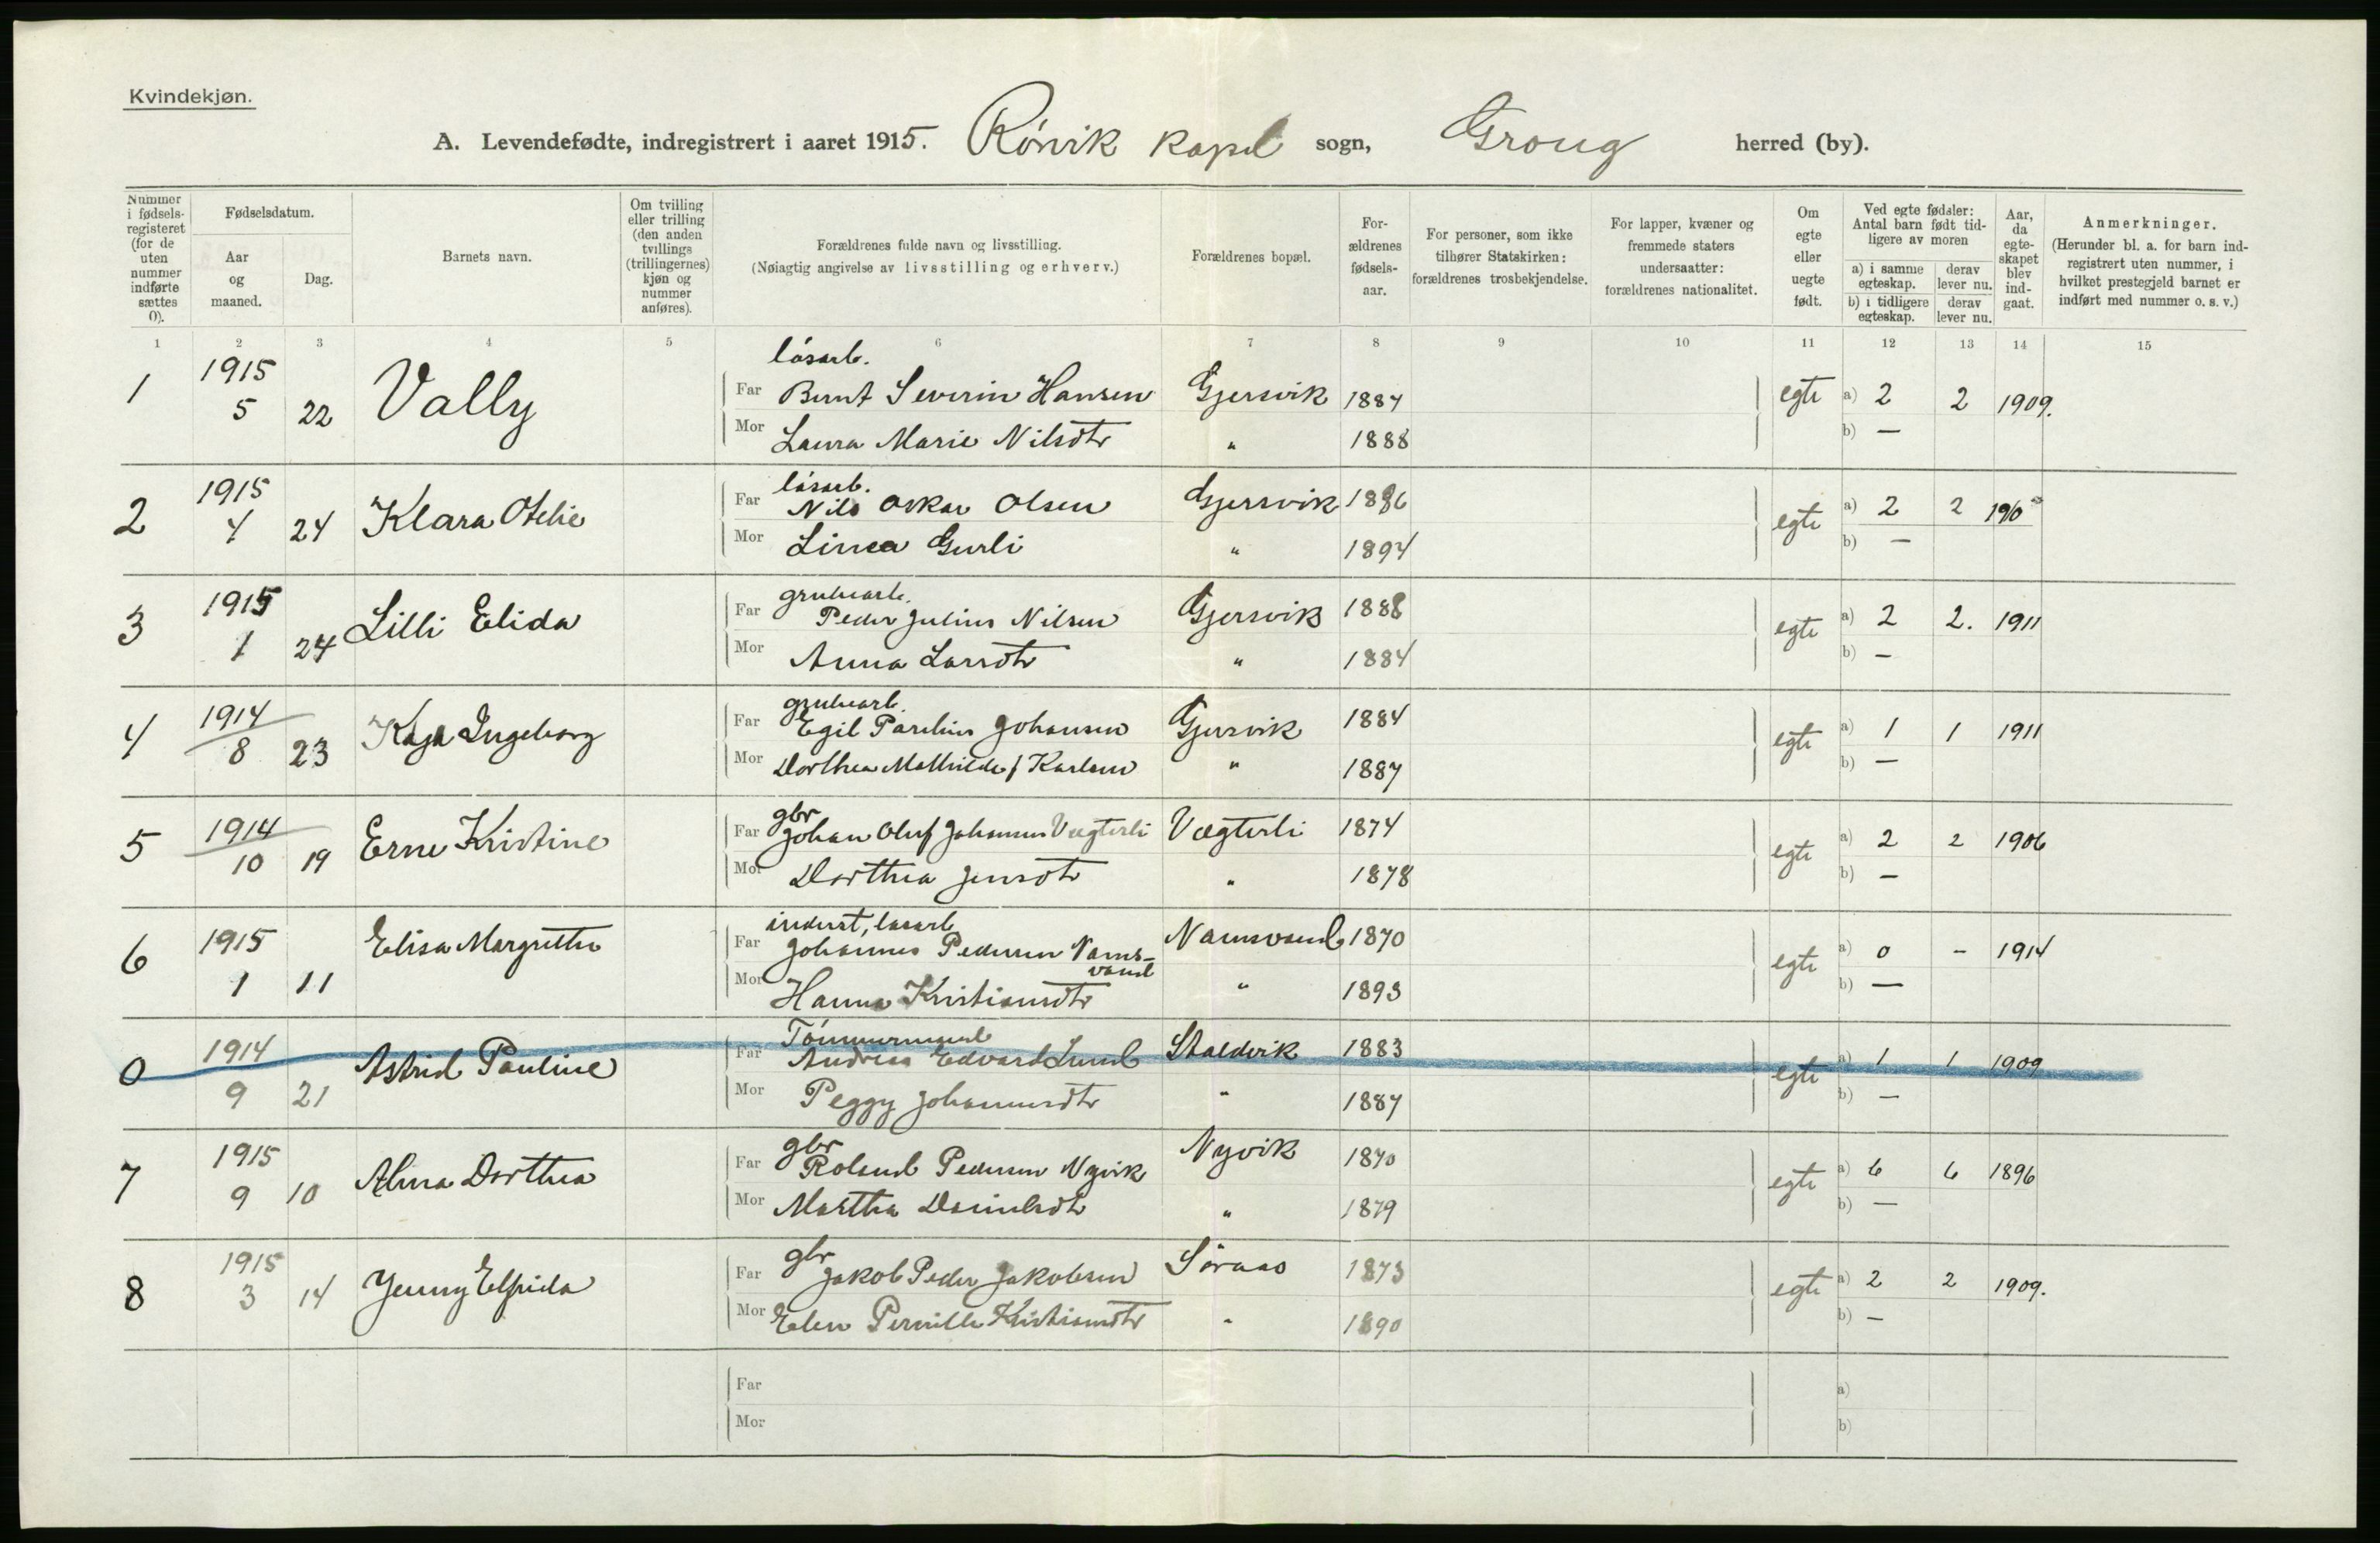 Kvindekjøn.
A. Levendefødte, indregistrert i aaret 1915. Rónvik kapel sogn, Grong herred (by).
Nummer i fødsels-registeret (for de uten nummer indførte sættes 0).
Fødselsdatum.
Aar og maaned.
Dag.
Barnets navn.
Om tvilling eller trilling (den anden tvillings (trillingernes) kjøn og nummer anføres).
Forældrenes fulde navn og livsstilling.
(Nøiagtig angivelse av livsstilling og erhverv.)
Forældrenes bopæl.
For-ældrenes fødsels-aar.
For personer, som ikke tilhører Statskirken: forældrenes trosbekjendelse.
For lapper, kvæner og fremmede staters undersaatter: forældrenes nationalitet.
Om egte eller uegte født.
Ved egte fødsler: Antal barn født tid-ligere av moren
a) i samme egteskap.
derav lever nu.
b) i tidligere egteskap.
derav lever nu.
Aar, da egte-skapet blev ind-gaat.
Anmerkninger.
(Herunder bl. a. for barn ind-registrert uten nummer, i hvilket prestegjeld barnet er indført med nummer o. s. v.)
1 2 3 4 5 6 7 8 9 10 11 12 13 14 15
lósarb.
1 1915 5 22 Vally Far Bernt Severin Hansen Gjersvik 1887 egte a) 2 2 1909.
Mor Laura Marie Nilsdtr " 1888 b) —
lósarb.
2 1915 4 24 Klara Otelie Far Nils Oskar Olsen Gjersvik 1886 egte a) 2 2
Mor Linea Gurli " 1894 b) —
grubearb.
3 1915 1 24 Lilli Elida Far Peder Julius Nilsen Gjersvik 1888 egte a) 2 2. 1911
Mor Anna Larsdtr " 1884 b) —
grubearb.
4 1914 8 23 Kaja Ingeborg Far Egil Parelius Johansen Gjersvik 1884 egte a) 1 1 1911
Mor Dorthea Mathilde f Karlsen " 1887 b) —
gbr
5 1914 10 19 Erne Kristine Far Johan Oluf Johansen Vegterli Vegterli 1874 egte a) 2 2 1906
Mor Dorthea Jensdtr " 1878 b) —
inderst, lósarb
6 1915 1 11 Elisa Margrethe Far Johannes Pedersen Nams-vand Namsvand 1870 egte a) 0 - 1914
Mor Hanna Kristiansdtr " 1893 b) —
Tómmermand
0 1914 9 21 Astrid Pauline Far Andreas Edvard Lund Staldvik 1883 egte a) 1 1 1909
Mor Peggy Johannesdtr " 1887 b) —
gbr
7 1915 9 10 Alma Dorthea Far Roland Pedersen Nyvik Nyvik 1870 egte a) 6 6 1896
Mor Martha Danielsdtr " 1879 b) —
gbr
8 1915 3 14 Jenny Elfrida Far Jakob Peder Jakobsen Sóraas 1873 egte a) 2 2 1909.
Mor Elen Pernille Kristiansdtr " 1890 b) —
Far a)
Mor b)